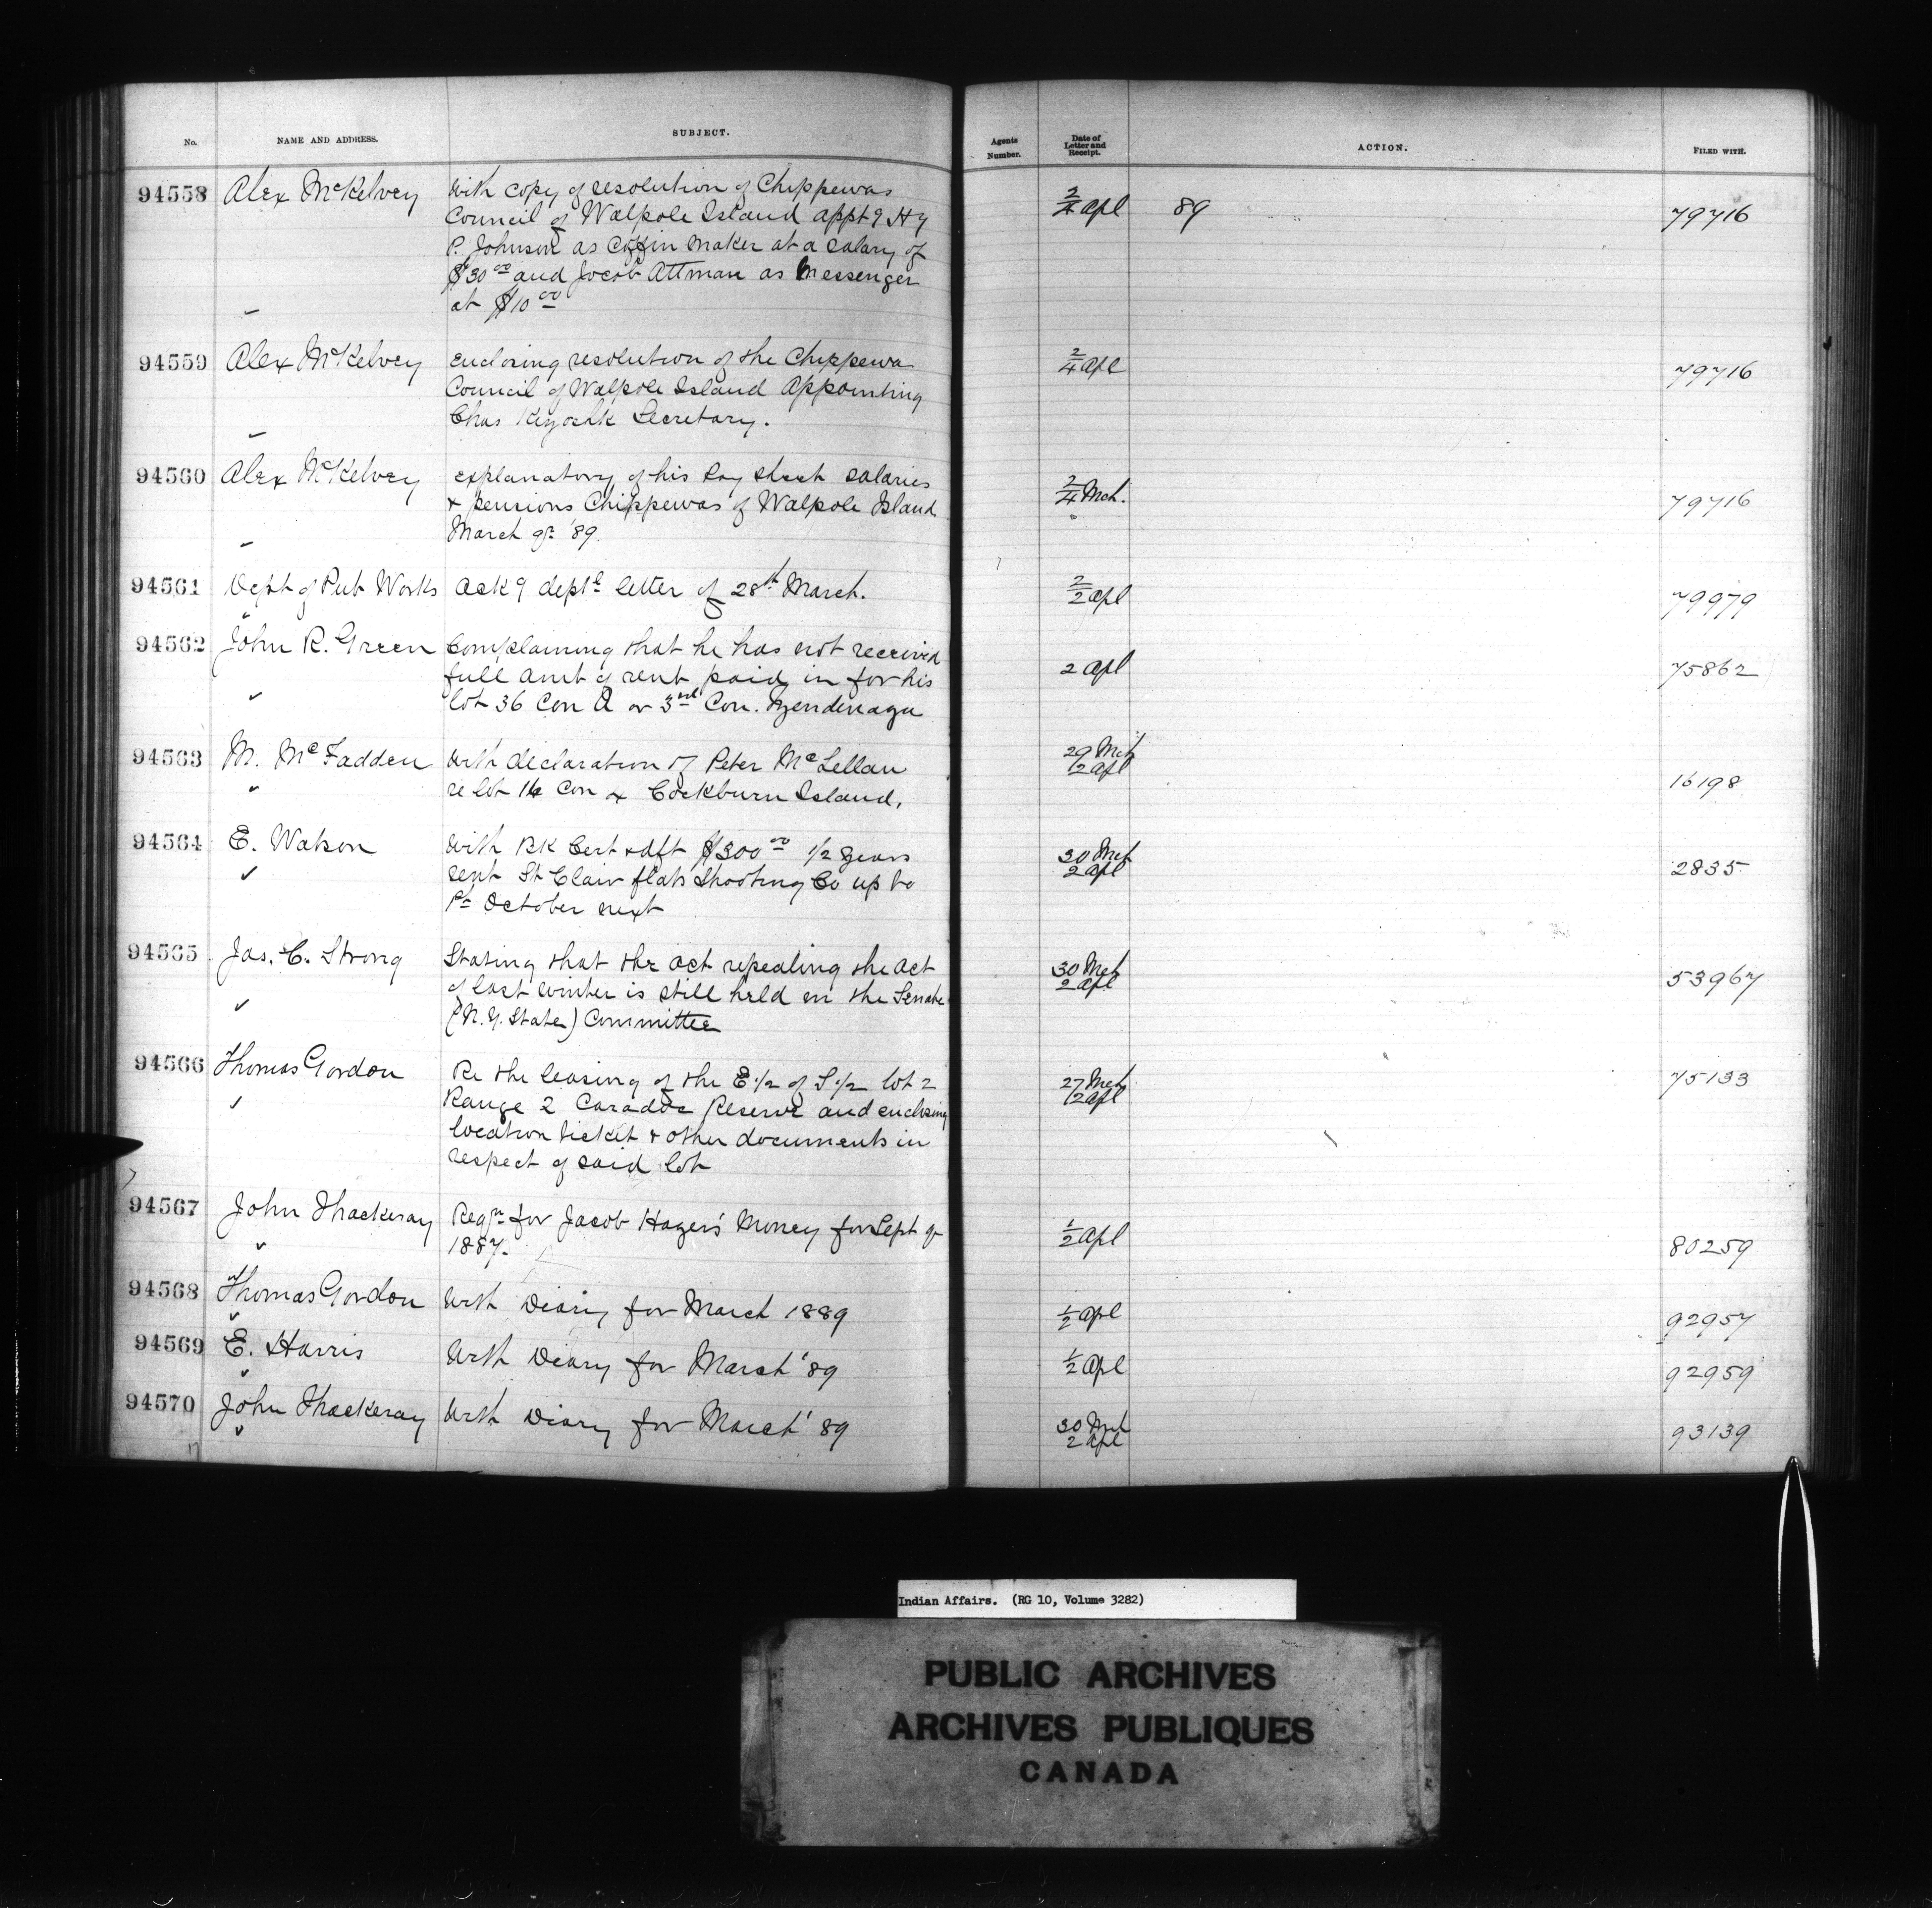 No. NAME AND ADDRESS. SUBJECT. Agents Number. Date of Letter and Receipt. ACTION. FILED WITH.
94558 Alex McKelvey With copy of resolution of Chippewas 2/4 Apl 89 79716
Council of Walpole Island appt9 Hy
P. Johnson as Coffin Maker at a salary of
$30 00 and Jacob Attman as Messenger
at $10 00
94559 Alex McKelvey enclosing resolution of the Chippewa 2/4 Apl 79716
Council of Walpole Island Appointing
Chas Kiyoshk Secretary.
94560 Alex McKelvey explanatory of his Pay sheet salaries 2/4 Mch. 79716
& pensions Chippewas of Walpole Island
March qr '89.
94561 Dept of Pub Works Ack9 deptl letter of 28th March. 2/2 Apl 79979
94562 John R. Green Complaining that he has not received 2 Apl 75862
full amt of rent paid in for his
lot 36 Con A or 3rd Con. Tyendinaga
94563 M. McFadden With declaration of Peter McLellan 29 Mch 2 Apl 16198
re lot 14 Con x Cockburn Island.
94564 E. Watson With BK Cert & dft $300 00 1/2 years 30 Mch 2 Apl 2835
rent St Clair flats Shooting Co up to
1st October next
94565 Jas. C. Strong Stating that the act repealing the act 30 Mch 2 Apl 53967
of last winter is still held in the Senate
(N.Y. State) Committee
94566 Thomas Gordon Re the leasing of the E 1/2 of S 1/2 lot 2 27 Mch 2 Apl 75133
Range 2 Caradoc Reserve and enclosing
location ticket & other documents in
respect of said lot
94567 John Thackeray Reqn for Jacob Hager's Money for Sept qr 1/2 Apl 80259
1887.
94568 Thomas Gordon With Diary for March 1889 1/2 Apl 92957
94569 E. Harris With Diary for March '89 1/2 Apl 92959
94570 John Thackeray With Diary for March '89 30 Mch 2 Apl 93139
Indian Affairs. (RG 10, Volume 3282)
PUBLIC ARCHIVES
ARCHIVES PUBLIQUES
CANADA